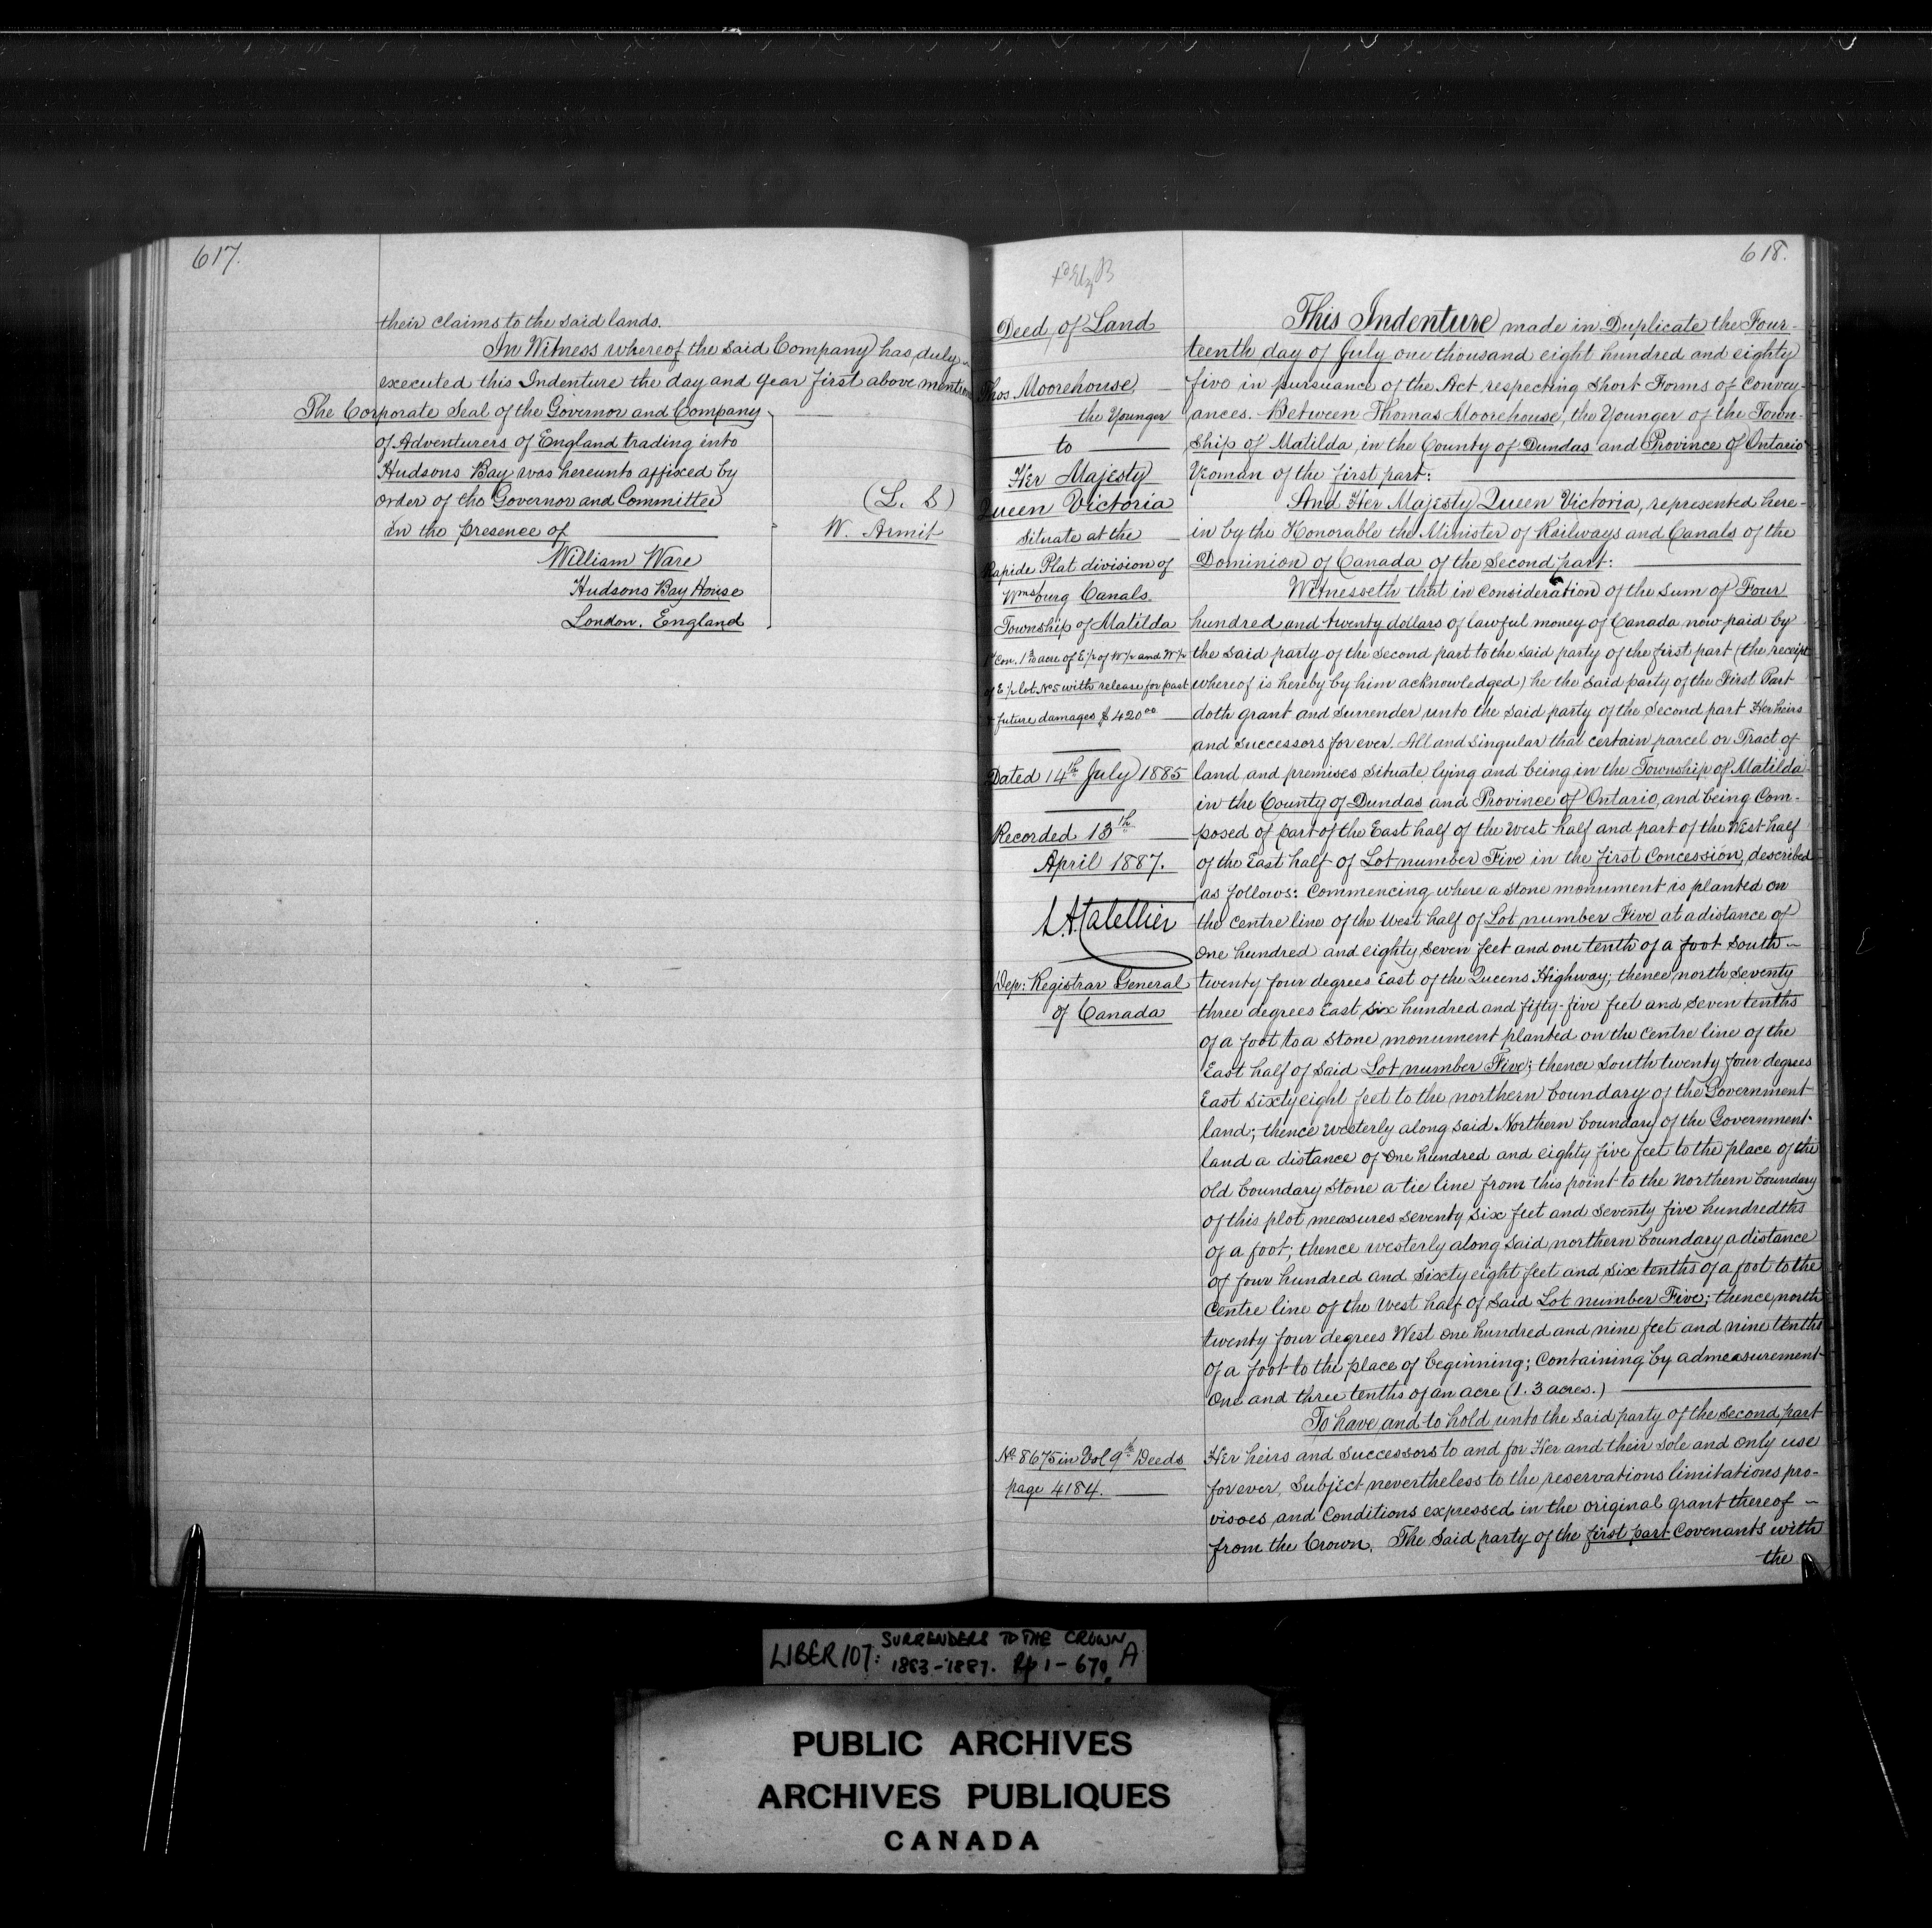 617.
their claims to the said lands.
In Witness whereof the said Company has duly
executed this Indenture the day and year first above mention
The Corporate Seal of the Governor and Company
of Adventurers of England trading into
Hudsons Bay was hereunto affixed by
order of the Governor and Committee
in the presence of
(L. S)
W. Armit
William Ware
Hudsons Bay House
London. England
618.
Deed of Land
Thos Moorehouse
the Younger
to
Her Majesty
Queen Victoria
situate at the
Rapide Plat division of
Wmsburg Canals.
Township of Matilda
1st Con. 1 3/10 acre of E ½ of W ½ and W ½
of E ½ lot No 5 with release for past
& future damages $ 420 00
Dated 14th July 1885
Recorded 13th
April 1887.
L.A. Catellier
Dep: Registrar General
of Canada
No 8675 in Vol 9th Deeds
page 4184.
This Indenture made in Duplicate the Four-
teenth day of July one thousand eight hundred and eighty
five in pursuance of the Act respecting Short Forms of Convey-
ances. Between Thomas Moorehouse, the Younger of the Town-
ship of Matilda, in the County of Dundas and Province of Ontario
Yeoman of the first part:
And Her Majesty Queen Victoria, represented here-
in by the Honorable the Minister of Railways and Canals of the
Dominion of Canada of the Second part:
Witnesseth that in consideration of the sum of Four
hundred and twenty dollars of lawful money of Canada now paid by
the said party of the second part to the said party of the first part (the receipt
whereof is hereby by him acknowledged) he the said party of the First Part
doth grant and surrender unto the said party of the Second part Her heirs
and successors for ever All and singular that certain parcel or Tract of
land and premises situate lying and being in the Township of Matilda
in the County of Dundas and Province of Ontario, and being Com-
posed of part of the East half of the West half and part of the West half
of the East half of Lot number Five in the first Concession, described
as follows: Commencing where a stone monument is planted on
the centre line of the West half of Lot number Five at a distance of
One hundred and eighty seven feet and one tenth of a foot South
twenty four degrees East of the Queens Highway; thence north seventy
three degrees East six hundred and fifty-five feet and seven tenths
of a foot to a stone monument planted on the centre line of the
East half of said Lot number Five; thence South twenty four degrees
East sixty eight feet to the northern boundary of the Government
land; thence westerly along said Northern boundary of the Government
land a distance of one hundred and eighty five feet to the place of the
old boundary stone a tie line from this point to the Northern boundary
of this plot measures seventy six feet and seventy five hundredths
of a foot; thence westerly along said northern boundary a distance
of four hundred and sixty eight feet and six tenths of a foot to the
Centre line of the West half of said Lot number Five; thence north
twenty four degrees West one hundred and nine feet and nine tenths
of a foot to the place of beginning; Containing by admeasurement
One and three tenths of an acre (1.3 acres.)
To have and to hold unto the said party of the second part
Her heirs and successors to and for Her and their sole and only use
forever, Subject nevertheless to the reservations limitations pro-
visoes and Conditions expressed in the original grant thereof
from the Crown. The said party of the first part Covenants with
the
LIBER 107: SURRENDERS TO THE CROWN
1883-1887. Pp 1-670 A
PUBLIC ARCHIVES
ARCHIVES PUBLIQUES
CANADA